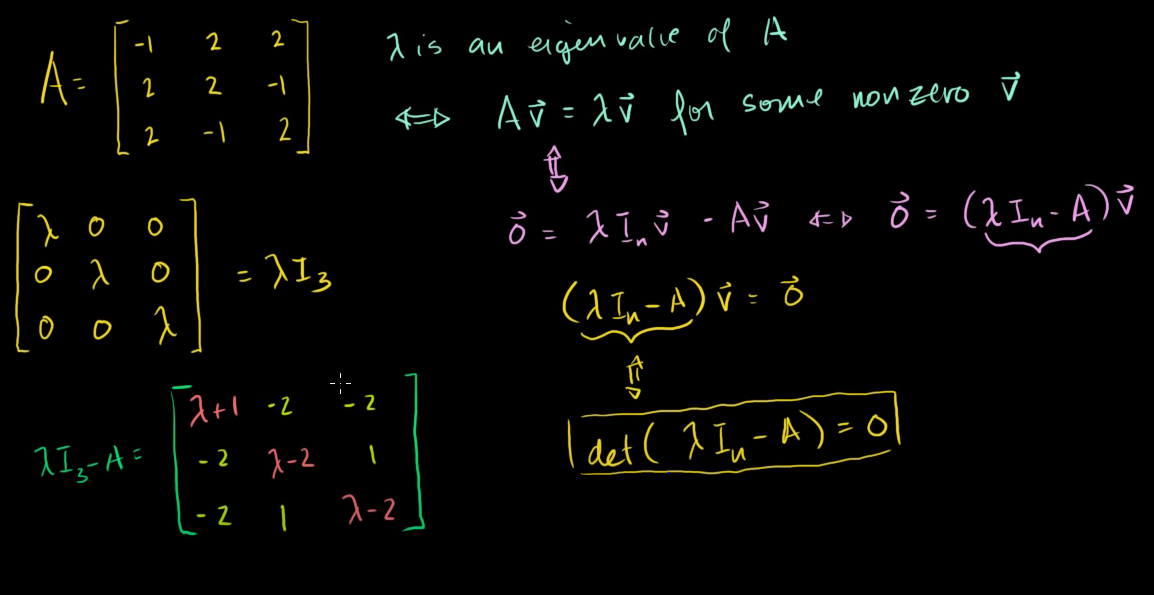 A = [ -1 2 2
2 2 -1
2 -1 2 ]
λ is an eigenvalue of A
⇔ Av⃗ = λv⃗ for some nonzero v⃗
⇕
0⃗ = λIₙv⃗ - Av⃗ ⇔ 0⃗ = (λIₙ - A)v⃗
[ λ 0 0
0 λ 0
0 0 λ ] = λI₃
(λIₙ - A)v⃗ = 0⃗
⇕
det(λIₙ - A) = 0
λI₃ - A = [ λ+1 -2 -2
-2 λ-2 1
-2 1 λ-2 ]